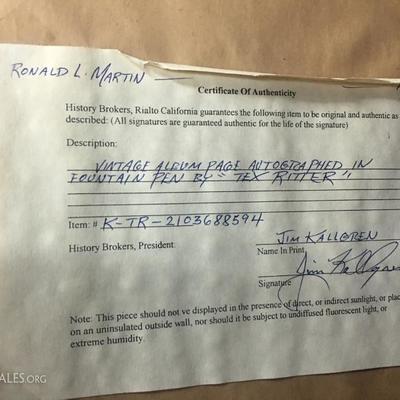 RONALD L. MARTIN —
Certificate Of Authenticity
History Brokers, Rialto California guarantees the following item to be original and authentic as
described: (All signatures are guaranteed authentic for the life of the signature)
Description:
VINTAGE ALBUM PAGE AUTOGRAPHED IN
FOUNTAIN PEN BY "TEX RITTER"
Item: # K-TR-2103688594
JIM KALLGREN
History Brokers, President
Name In Print
Jim Kallgren
Signature
Note: This piece should not ve displayed in the presence of direct, or indirect sunlight, or
on an uninsulated outside wall, nor should it be subject to undiffused fluorescent light, or
extreme humidity.
ALES.ORG